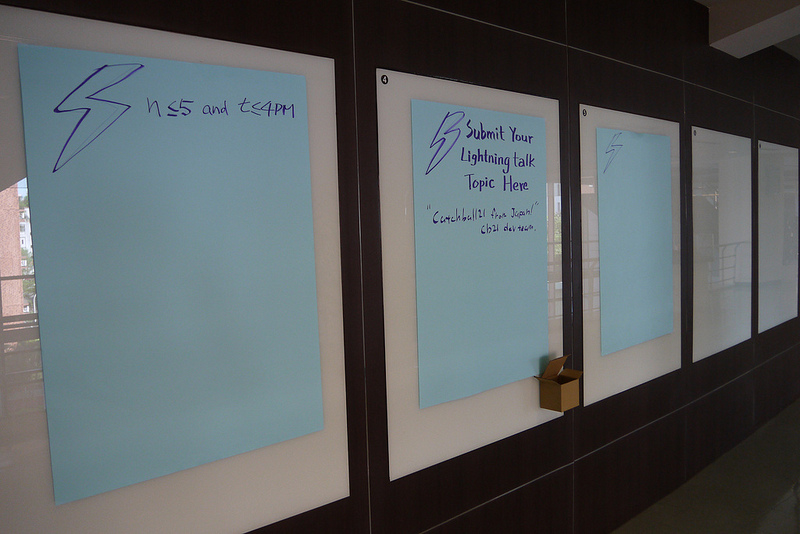 n≤5 and t≤4PM
Submit Your
Lightning talk
Topic Here
"Catchball21 from Japan!"
cb21 dev team.
4
3